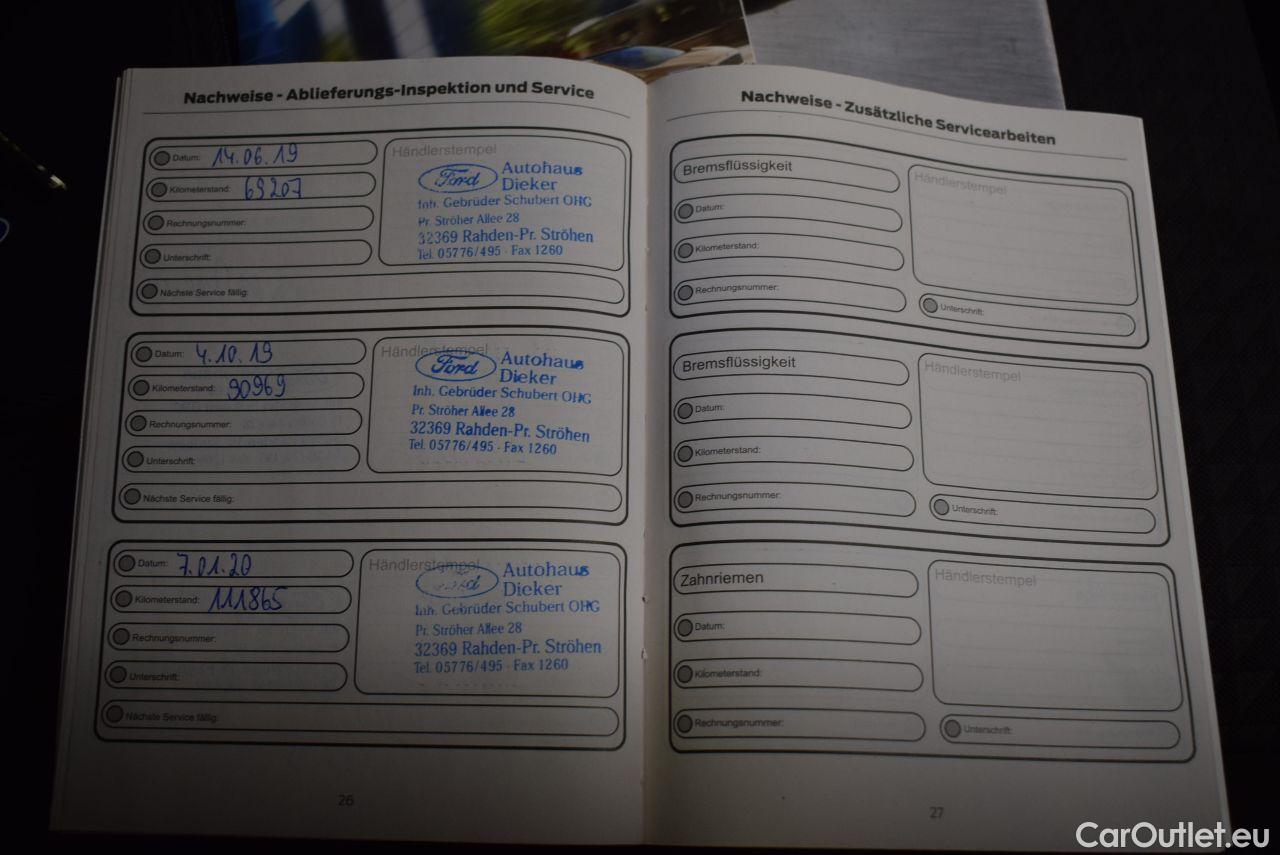 Nachweise - Ablieferungs-Inspektion und Service
Datum: 14.06.19
Kilometerstand: 69207
Rechnungsnummer:
Unterschrift:
Nächste Service fällig:
Händlerstempel
Ford Autohaus
Dieker
Inh. Gebrüder Schubert OHG
Pr. Ströher Allee 28
32369 Rahden-Pr. Ströhen
Tel. 05776/495 · Fax 1260
Datum: 4.10.19
Kilometerstand: 90969
Rechnungsnummer:
Unterschrift:
Nächste Service fällig:
Händlerstempel
Ford Autohaus
Dieker
Inh. Gebrüder Schubert OHG
Pr. Ströher Allee 28
32369 Rahden-Pr. Ströhen
Tel. 05776/495 · Fax 1260
Datum: 7.01.20
Kilometerstand: 111865
Rechnungsnummer:
Unterschrift:
Nächste Service fällig:
Händlerstempel
Ford Autohaus
Dieker
Inh. Gebrüder Schubert OHG
Pr. Ströher Allee 28
32369 Rahden-Pr. Ströhen
Tel. 05776/495 · Fax 1260
26
Nachweise - Zusätzliche Servicearbeiten
Bremsflüssigkeit
Datum:
Kilometerstand:
Rechnungsnummer:
Händlerstempel
Unterschrift:
Bremsflüssigkeit
Datum:
Kilometerstand:
Rechnungsnummer:
Händlerstempel
Unterschrift:
Zahnriemen
Datum:
Kilometerstand:
Rechnungsnummer:
Händlerstempel
Unterschrift:
27
CarOutlet.eu